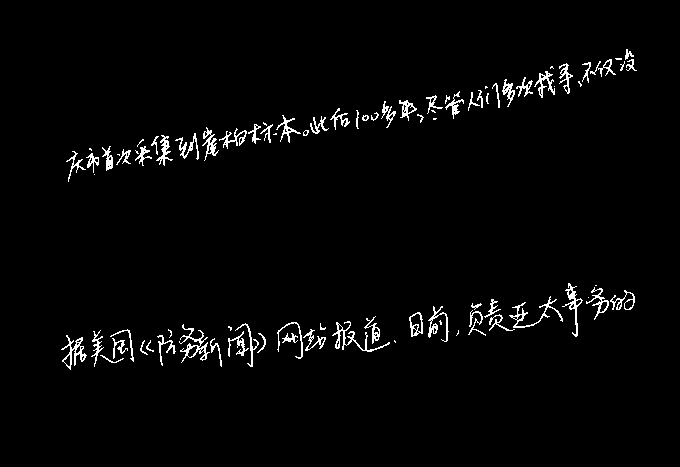 庆市首次采集到崖柏标本。此后100多年,尽管人们多次找寻,不仅没
据美国《防务新闻》网站报道,日前,负责亚太事务的